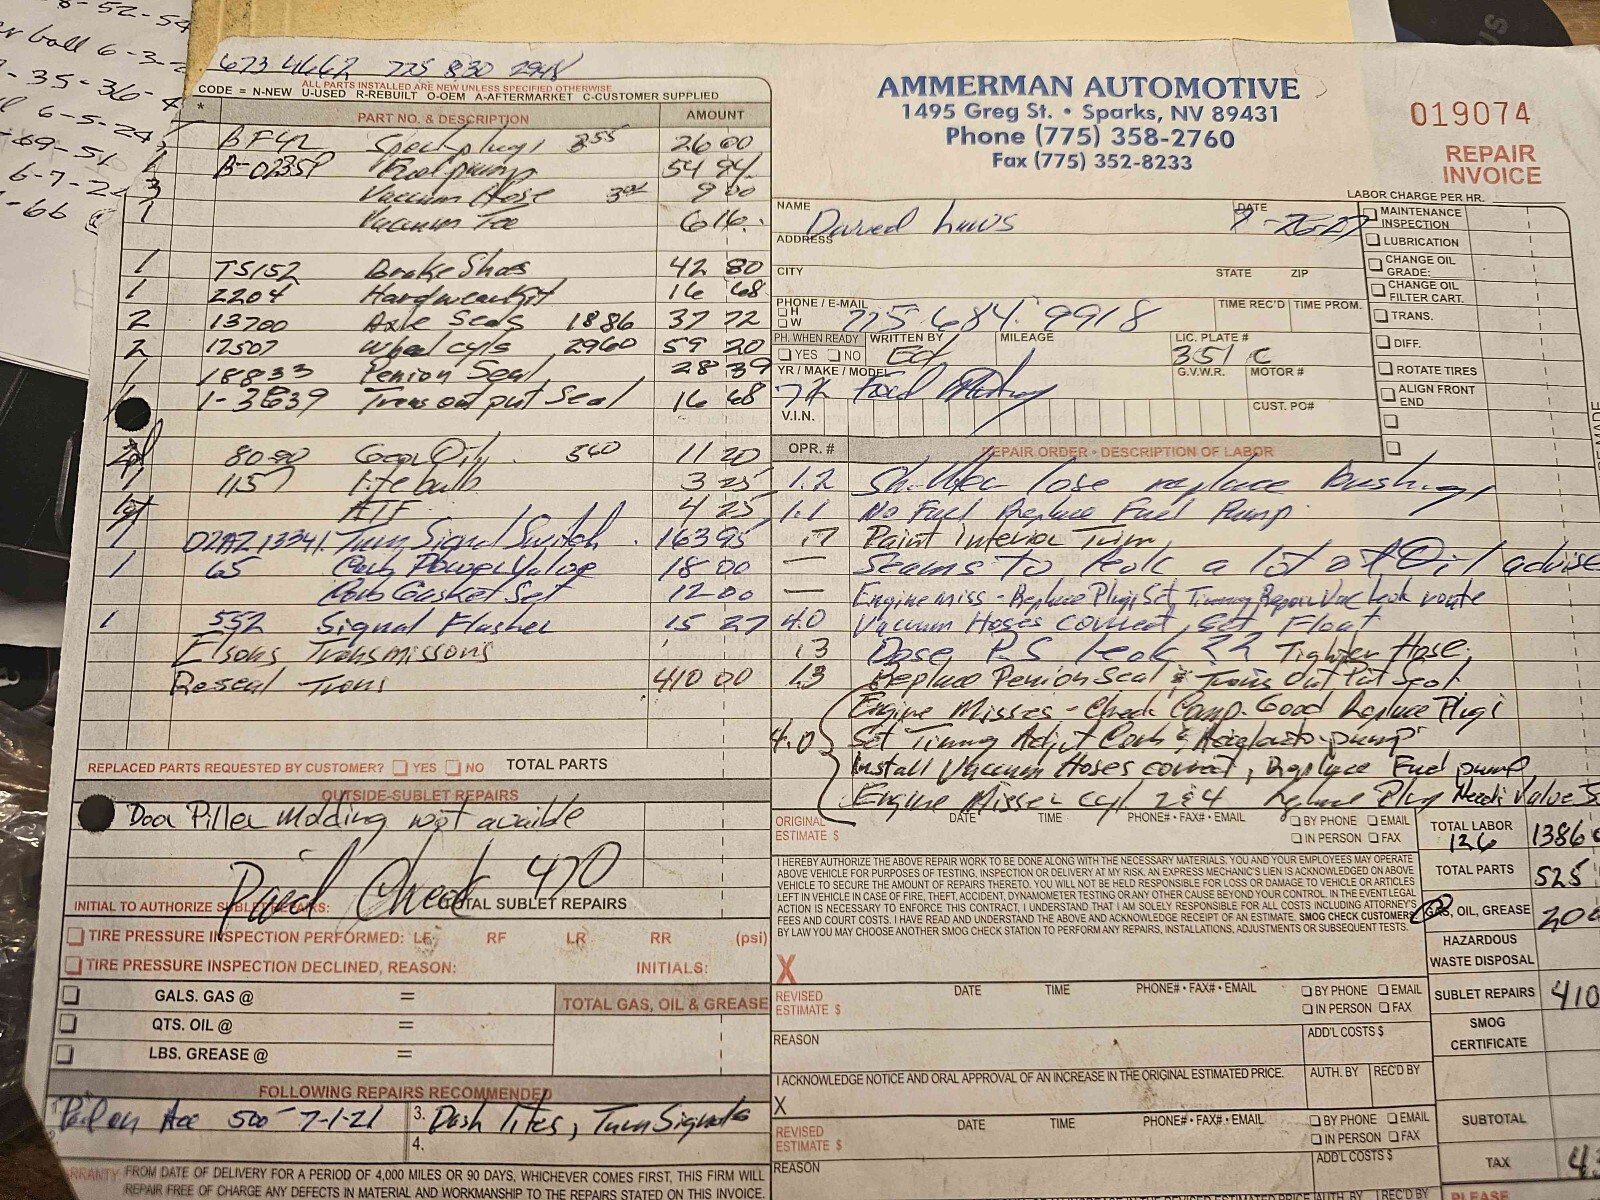 673 4662 775 830 2948
ALL PARTS INSTALLED ARE NEW UNLESS SPECIFIED OTHERWISE
CODE = N-NEW U-USED R-REBUILT O-OEM A-AFTERMARKET C-CUSTOMER SUPPLIED
* PART NO. & DESCRIPTION AMOUNT
BF42 Spark plugs 355 26 00
Fuel pump 54 94
3 Vacuum Hose 9 00
1 Vacuum Tee 6 16
1 TS152 Brake Shos 42 80
1 2204 Hardwear Kit 16 68
2 13700 Axle Seals 1886 37 72
2 Wheel cyls 2960 59 20
1 18833 Penion Seal 28 39
Trans out put Seal 16 68
80-90 Gear Oil 560 11 20
1157 Lite bulb 3 25
ATF 4 25
1 Turn Signal Switch 163 95
1 65 Carb Power Valve 18 00
Carb Gasket Set 12 00
1 552 Signal Flasher 15 27
Elsons Transmissons
Reseal Trans 410 00
REPLACED PARTS REQUESTED BY CUSTOMER? YES NO TOTAL PARTS
OUTSIDE-SUBLET REPAIRS
Door Piller Molding not avaible
Paid Check 470
INITIAL TO AUTHORIZE SUBLET REPAIRS: TOTAL SUBLET REPAIRS
TIRE PRESSURE INSPECTION PERFORMED: LF RF LR RR (psi)
TIRE PRESSURE INSPECTION DECLINED, REASON: INITIALS:
GALS. GAS @ =
QTS. OIL @ =
LBS. GREASE @ =
TOTAL GAS, OIL & GREASE
FOLLOWING REPAIRS RECOMMENDED
Paid on Acc 500 7-1-21
3. Dash Lites, Turn Signals
4.
WARRANTY: FROM DATE OF DELIVERY FOR A PERIOD OF 4,000 MILES OR 90 DAYS, WHICHEVER COMES FIRST, THIS FIRM WILL
REPAIR FREE OF CHARGE ANY DEFECTS IN MATERIAL AND WORKMANSHIP TO THE REPAIRS STATED ON THIS INVOICE.
AMMERMAN AUTOMOTIVE
1495 Greg St. • Sparks, NV 89431
Phone (775) 358-2760
Fax (775) 352-8233
019074
REPAIR
INVOICE
LABOR CHARGE PER HR.
NAME DATE
ADDRESS
CITY STATE ZIP
PHONE / E-MAIL TIME REC'D TIME PROM.
H
W
775 684 9918
PH. WHEN READY WRITTEN BY MILEAGE LIC. PLATE #
YES NO Ed 351 C
YR / MAKE / MODEL G.V.W.R. MOTOR #
Ford
V.I.N. CUST. PO#
MAINTENANCE
INSPECTION
LUBRICATION
CHANGE OIL
GRADE:
CHANGE OIL
FILTER CART.
TRANS.
DIFF.
ROTATE TIRES
ALIGN FRONT
END
OPR. # REPAIR ORDER - DESCRIPTION OF LABOR
1.2 Shifter lose replace Bushings
1.1 No Fuel Replace Fuel Pump
Paint Interior Trim
Seams to leak a lot of Oil advise
Engine miss - Replace Plugs Set Timing Repair Vac leak route
4.0 Vacuum Hoses correct, Set Float
Dose PS leak ?? Tighten Hose
1.3 Replace Penion Seal & Trans Out Put Seal
Engine Misses - Check Comp. Good Replace Plugs
4.0 Set Timing Adjust Carb &
Install Vacuum Hoses correct, Replace Fuel pump
Engine Misses cyl 2&4 Replace Plug Needs Valve
ORIGINAL
ESTIMATE $
DATE TIME PHONE# • FAX# • EMAIL
BY PHONE EMAIL
IN PERSON FAX
I HEREBY AUTHORIZE THE ABOVE REPAIR WORK TO BE DONE ALONG WITH THE NECESSARY MATERIALS. YOU AND YOUR EMPLOYEES MAY OPERATE
ABOVE VEHICLE FOR PURPOSES OF TESTING, INSPECTION OR DELIVERY AT MY RISK. AN EXPRESS MECHANIC'S LIEN IS ACKNOWLEDGED ON ABOVE
VEHICLE TO SECURE THE AMOUNT OF REPAIRS THERETO. YOU WILL NOT BE HELD RESPONSIBLE FOR LOSS OR DAMAGE TO VEHICLE OR ARTICLES
LEFT IN VEHICLE IN CASE OF FIRE, THEFT, ACCIDENT, DYNAMOMETER TESTING OR ANY OTHER CAUSE BEYOND YOUR CONTROL. IN THE EVENT LEGAL
ACTION IS NECESSARY TO ENFORCE THIS CONTRACT, I UNDERSTAND THAT I AM SOLELY RESPONSIBLE FOR ALL COSTS INCLUDING ATTORNEY'S
FEES AND COURT COSTS. I HAVE READ AND UNDERSTAND THE ABOVE AND ACKNOWLEDGE RECEIPT OF AN ESTIMATE. SMOG CHECK CUSTOMERS
BY LAW YOU MAY CHOOSE ANOTHER SMOG CHECK STATION TO PERFORM ANY REPAIRS, INSTALLATIONS, ADJUSTMENTS OR SUBSEQUENT TESTS.
X
REVISED
ESTIMATE $
DATE TIME PHONE# • FAX# • EMAIL
BY PHONE EMAIL
IN PERSON FAX
REASON ADD'L COSTS $
I ACKNOWLEDGE NOTICE AND ORAL APPROVAL OF AN INCREASE IN THE ORIGINAL ESTIMATED PRICE. AUTH. BY REC'D BY
X
REVISED
ESTIMATE $
DATE TIME PHONE# • FAX# • EMAIL
BY PHONE EMAIL
IN PERSON FAX
REASON ADD'L COSTS $
TOTAL LABOR 12 6 1386
TOTAL PARTS 525
GAS, OIL, GREASE 20
HAZARDOUS
WASTE DISPOSAL
SUBLET REPAIRS 410
SMOG
CERTIFICATE
SUBTOTAL
TAX
PLEASE